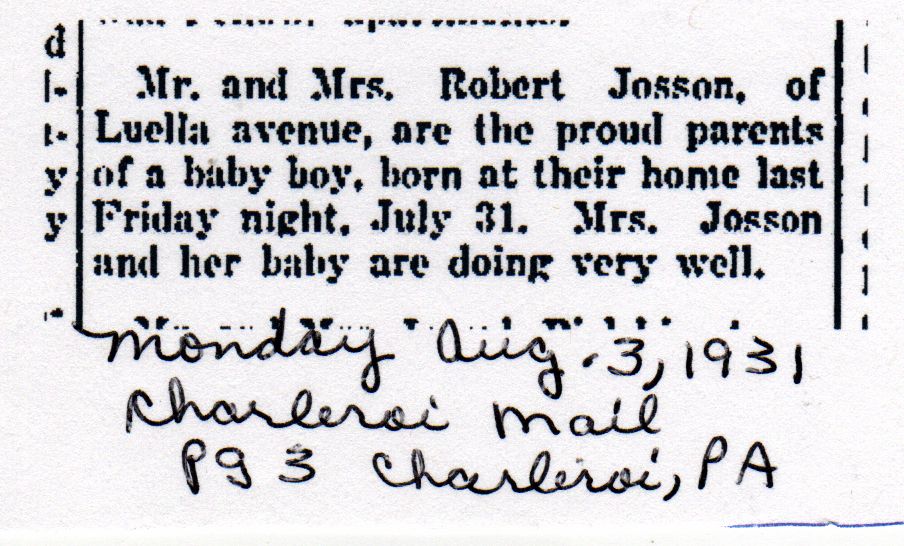 d
y
y
Mr. and Mrs. Robert Josson, of
Luella avenue, are the proud parents
of a baby boy, born at their home last
Friday night, July 31. Mrs. Josson
and her baby are doing very well.
Monday Aug. 3, 1931
Charleroi Mail
Pg 3 Charleroi, PA